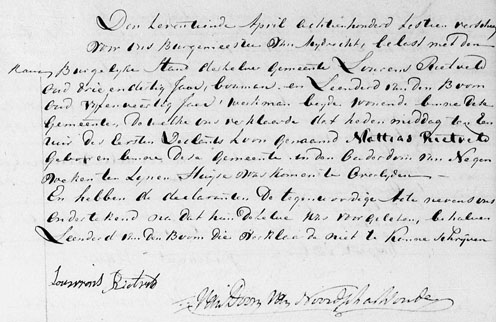 Den Seventiende April achtienhonderd Sestien verscheen
voor ons Burgemeester van Mydrecht, belast met den
Burgelyke Stand derselver Gemeente Louwrens Rietveld
oud drie en dertig Jaar, bouman en Leendert van den Boom
oud vyfenveertig Jaar werkman beyde wonende binne deze
Gemeente, Dewelke ons verklaarde dat heden middag ten Een
uure des Eersten Declarants Zoon Genaamd Mattias Rietveld
Geboren binne Dese Gemeente in den Ouderdom van Negen
weken ten Zynen Huyse was komen te Overlyden
En hebben de declaranten De tegenwoordige Acte nevens ons
onderteekend na dat hun Dezelve was voorgelesen, behalven
Leendert van den Boom die verklaarde niet te konne schryven
Louwrens Rietveld